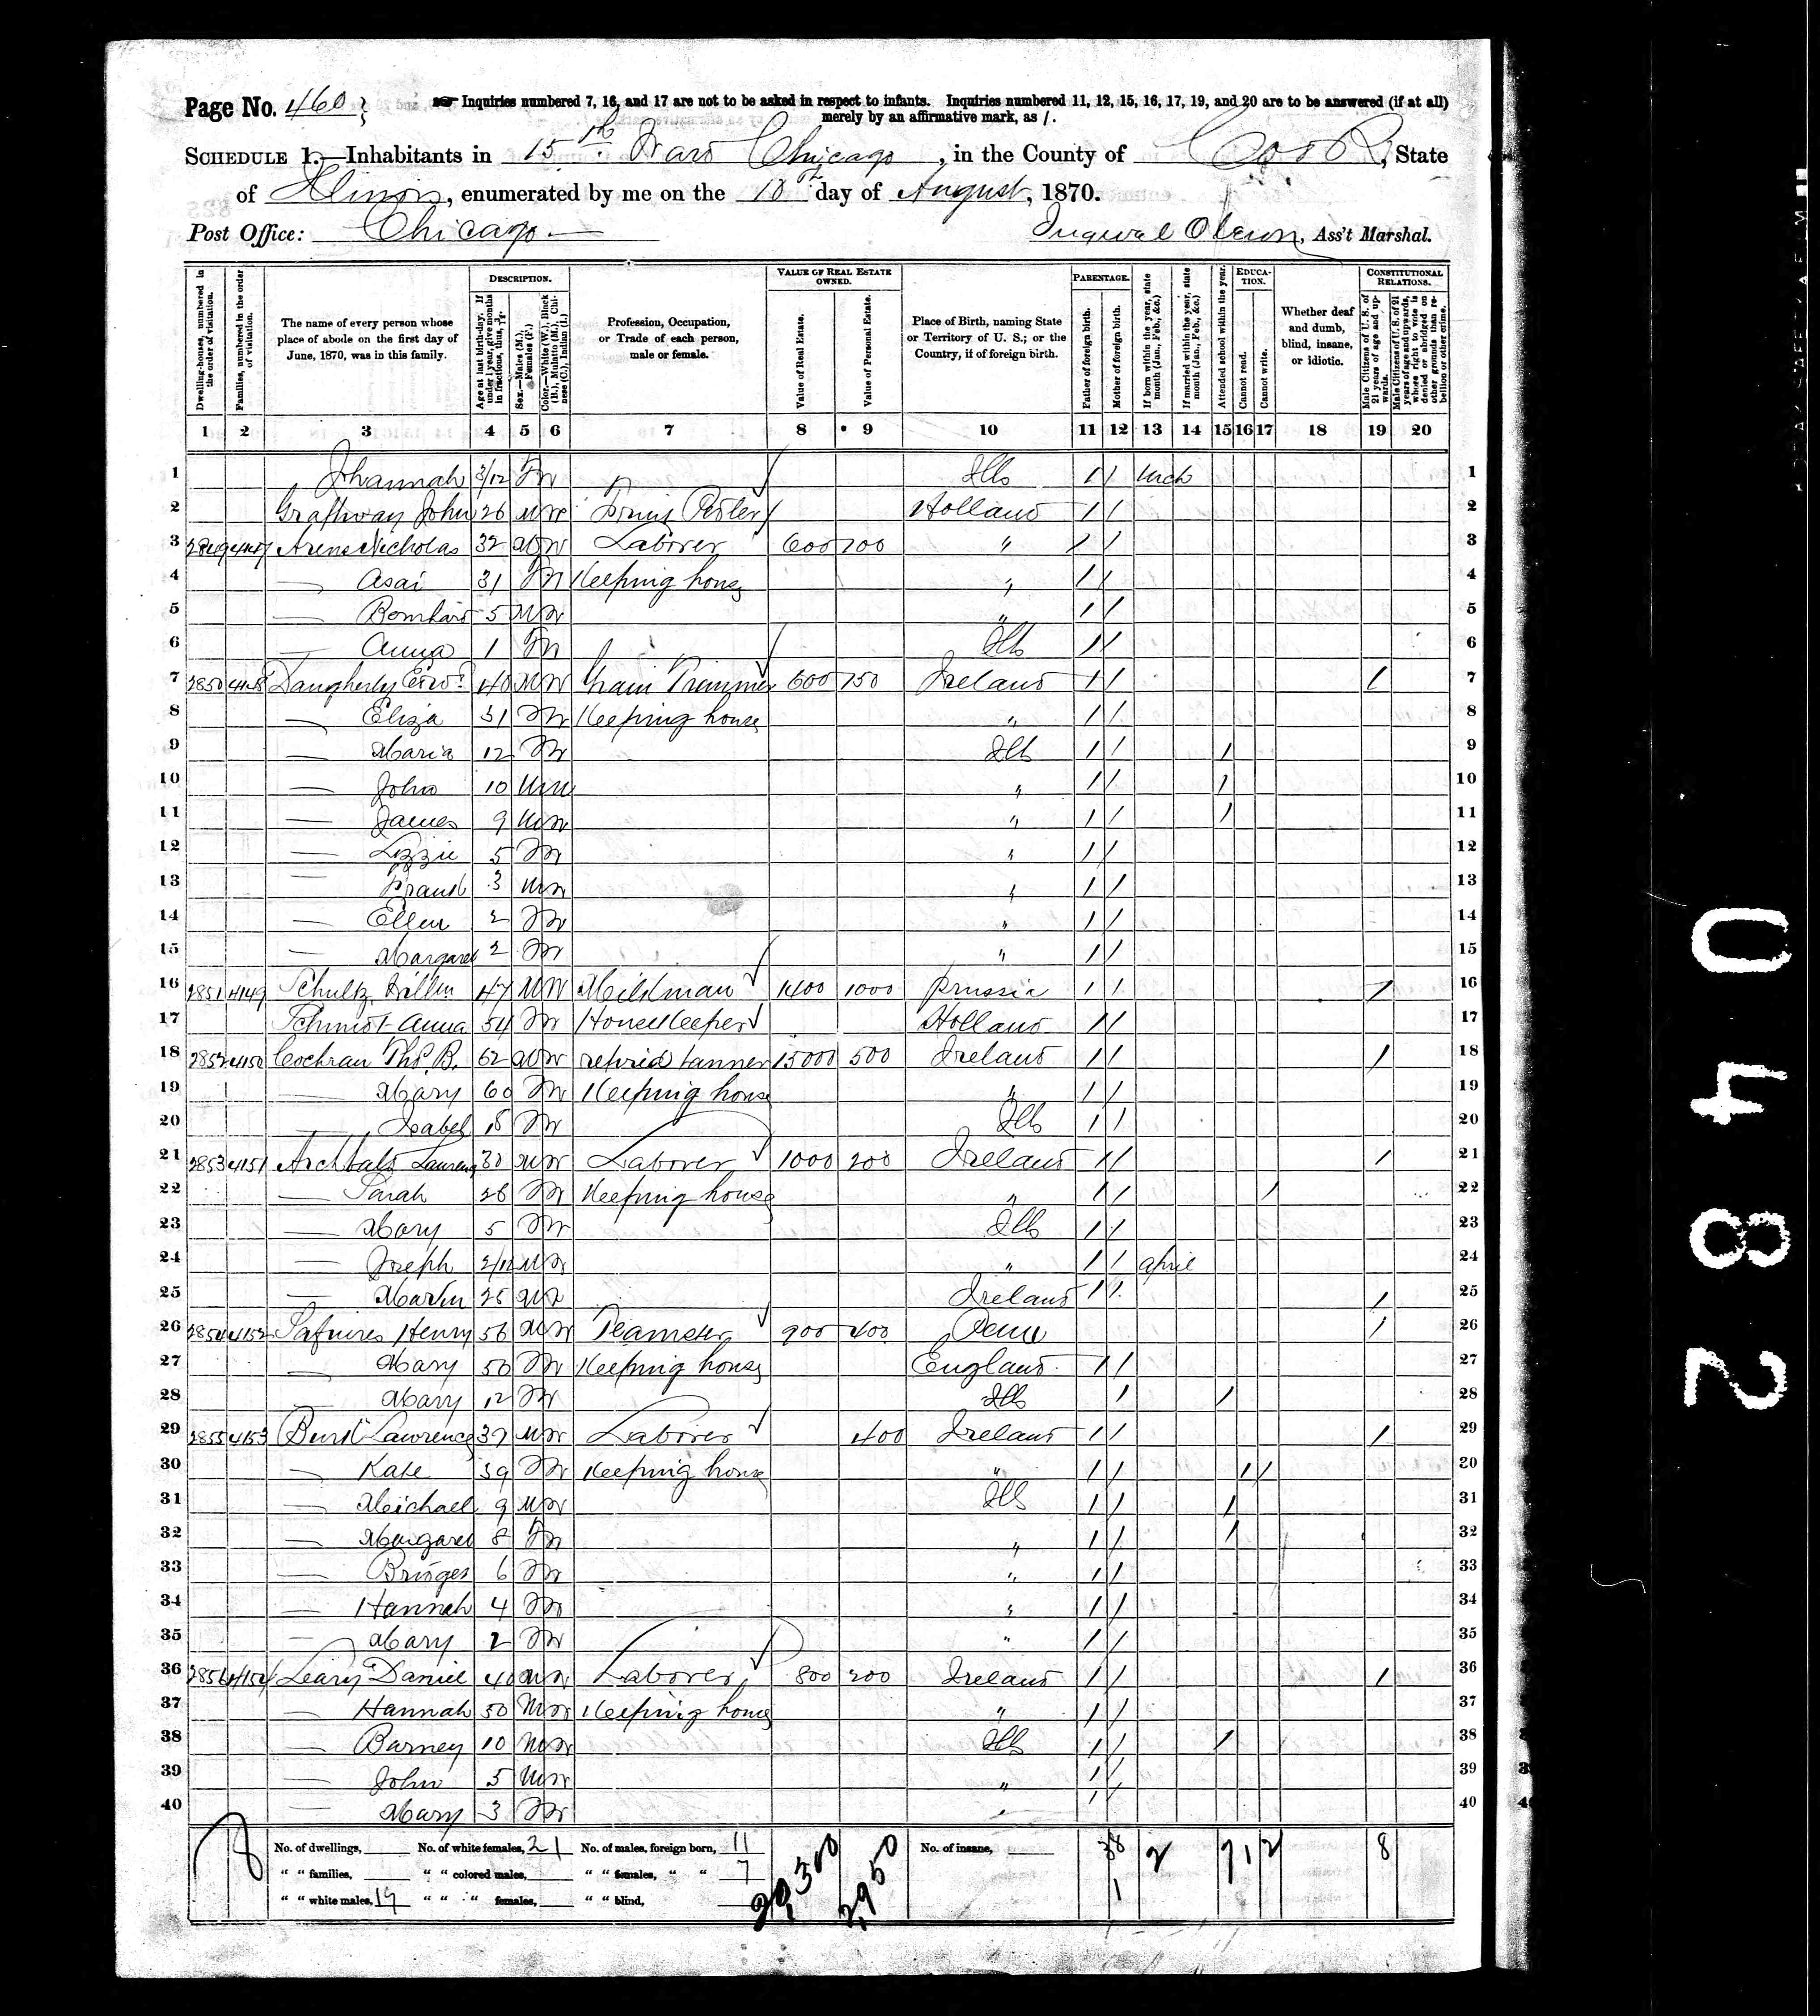 Page No. 460
Inquiries numbered 7, 16, and 17 are not to be asked in respect to infants. Inquiries numbered 11, 12, 15, 16, 17, 19, and 20 are to be answered (if at all)
merely by an affirmative mark, as /.
SCHEDULE 1.—Inhabitants in 15th Ward Chicago, in the County of Cook, State
of Illinois, enumerated by me on the 10th day of August, 1870.
Post Office: Chicago Ass't Marshal.
DESCRIPTION. VALUE OF REAL ESTATE OWNED. PARENTAGE. EDUCATION. CONSTITUTIONAL RELATIONS.
Dwelling-houses, numbered in the order of visitation.
Families, numbered in the order of visitation.
The name of every person whose place of abode on the first day of June, 1870, was in this family.
Age at last birth-day. If under 1 year, give months in fractions, thus, 3/12.
Sex.—Males (M.), Females (F.)
Color.—White (W.), Black (B.), Mulatto (M.), Chinese (C.), Indian (I.)
Profession, Occupation, or Trade of each person, male or female.
Value of Real Estate.
Value of Personal Estate.
Place of Birth, naming State or Territory of U. S.; or the Country, if of foreign birth.
Father of foreign birth.
Mother of foreign birth.
If born within the year, state month (Jan., Feb., &c.)
If married within the year, state month (Jan., Feb., &c.)
Attended school within the year.
Cannot read.
Cannot write.
Whether deaf and dumb, blind, insane, or idiotic.
Male Citizens of U. S. of 21 years of age and upwards.
Male Citizens of U. S. of 21 years of age and upwards, whose right to vote is denied or abridged on other grounds than rebellion or other crime.
1 2 3 4 5 6 7 8 9 10 11 12 13 14 15 16 17 18 19 20
1 Johannah 3/12 F W Ills / / Mch 1
2 John 26 M W Holland / / 2
3 2849 4147 Arens Nicholas 32 M W Laborer 600 200 " / / 3
4 — 31 F W Keeping house " / / 4
5 — 5 M W " / / 5
6 — Anna 1 F W Ills / / 6
7 2850 4148 Daugherty Edwd 40 M W Grain Trimmer 600 150 Ireland / / / 7
8 — Eliza 31 F W Keeping house " / / 8
9 — Maria 12 F W Ills / / / 9
10 — John 10 M W " / / / 10
11 — James 9 M W " / / / 11
12 — Lizzie 5 F W " / / 12
13 — Frank 3 M W " / / 13
14 — Ellen 2 F W " / / 14
15 — Margaret 2 F W " / / 15
16 2851 4149 Schultz 47 M W Milkman 1400 1000 Prussia / / / 16
17 Schmidt Anna 54 F W HouseKeeper Holland / / 17
18 2852 4150 Cochran Thos. B. 62 M W retired tanner 15000 500 Ireland / / / 18
19 — Mary 60 F W Keeping house " / / 19
20 — Isabel 18 F W Ills / / 20
21 2853 4151 Archbald 30 M W Laborer 1000 200 Ireland / / / 21
22 — Sarah 26 F W Keeping house " / / / 22
23 — Mary 5 F W Ills / / 23
24 — Joseph 2/12 M W " / / April 24
25 — Martin 25 M W Ireland / / / 25
26 2854 4152 Henry 56 M W Teamster 900 400 Penn / 26
27 — Mary 50 F W Keeping house England / / 27
28 — Mary 12 F W Ills / / 28
29 2855 4153 Lawrence 37 M W Laborer 400 Ireland / / / 29
30 — Kate 39 F W Keeping house " / / / / 20
31 — Michael 9 M W Ills / / / 31
32 — Margaret 8 F W " / / / 32
33 — Bridget 6 F W " / / 33
34 — Hannah 4 F W " / / 34
35 — Mary 2 F W " / / 35
36 2856 4154 Leary Daniel 40 M W Laborer 800 200 Ireland / / / 36
37 — Hannah 50 M W Keeping house " / / 37
38 — Barney 10 M W Ills / / / 38
39 — John 5 M W " / / 39
40 — Mary 3 F W " / / 40
No. of dwellings, No. of white females, 21 No. of males, foreign born, 11 No. of insane, 38 2 7 1 2 8
" " families, " " colored males, " " females, " " 7
" " white males, 19 " " " females, " " blind, 20,300 2,950 1
0482